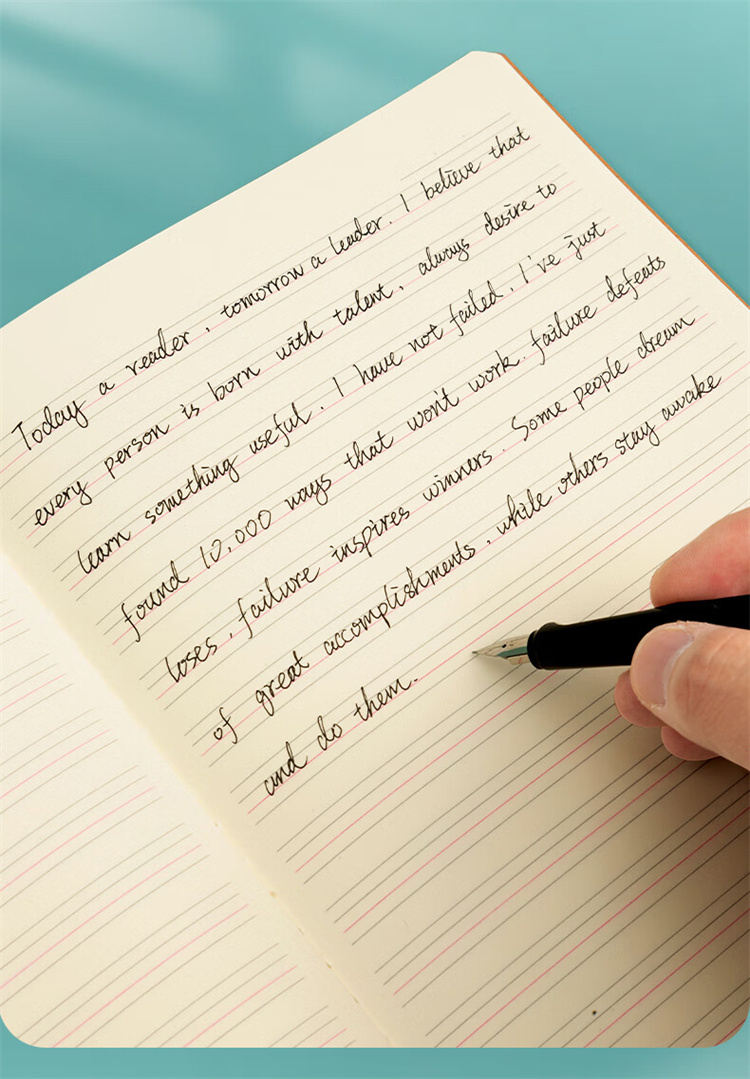 Today a reader, tomorrow a leader. I believe that
every person is born with talent, always desire to
learn something useful. I have not failed. I've just
found 10,000 ways that won't work. failure defeats
loses, failure inspires winners. Some people dream
of great accomplishments, while others stay awake
and do them.